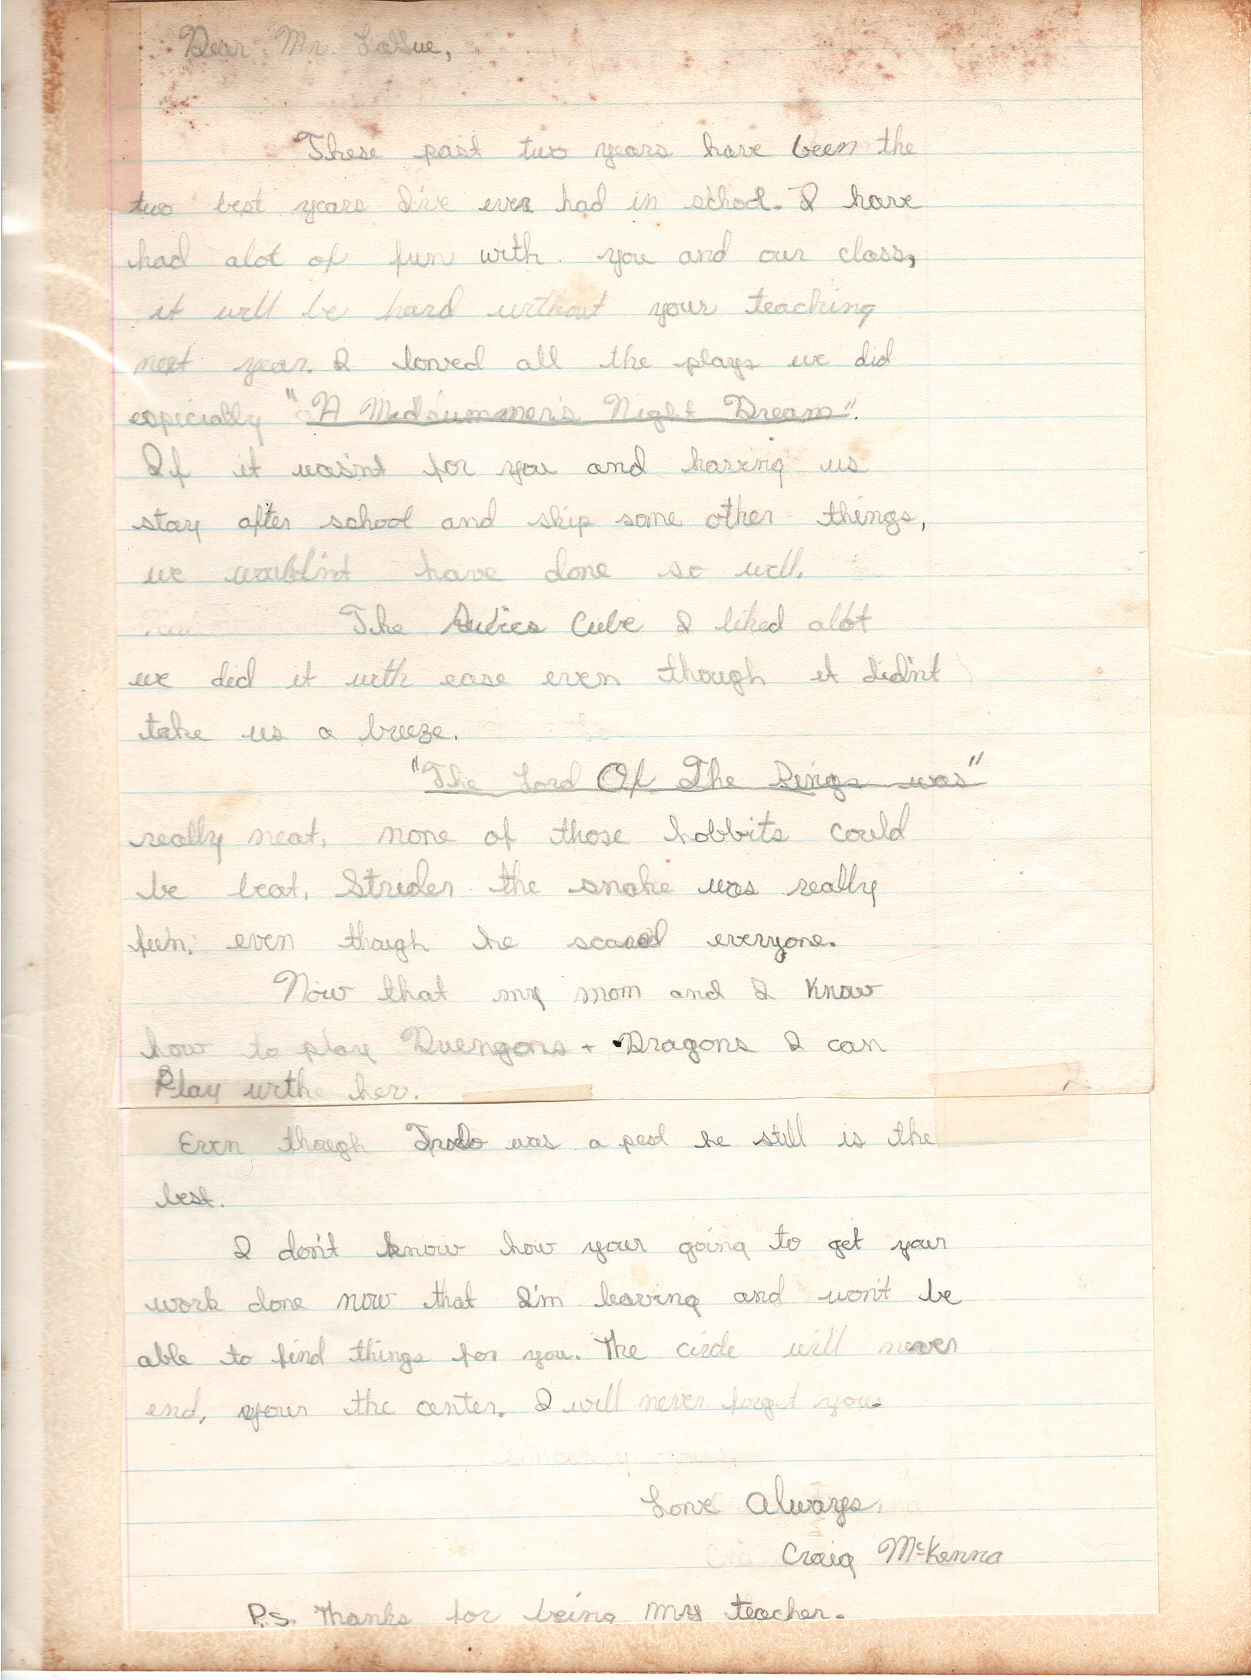 Dear Mr. LaSue,
These past two years have been the
two best years I've ever had in school. I have
had alot of fun with you and our class,
it will be hard without your teaching
next year. I loved all the plays we did
especially "A Midsummer's Night Dream".
If it wasn't for you and having us
stay after school and skip some other things,
we wouldn't have done so well.
The Rubics Cube I liked alot
we did it with ease even though it didn't
take us a breeze.
"The Lord Of The Rings was"
really neat, none of those hobbits could
be beat, Strider the snake was really
fun, even though he scared everyone.
Now that my mom and I know
how to play Duengons + Dragons I can
Play withe her.
Even though Frodo was a pest he still is the
best.
I don't know how your going to get your
work done now that I'm leaving and won't be
able to find things for you. The circle will never
end, your the center. I will never forget you.
Love Always,
Craig McKenna
P.s. Thanks for being my teacher.